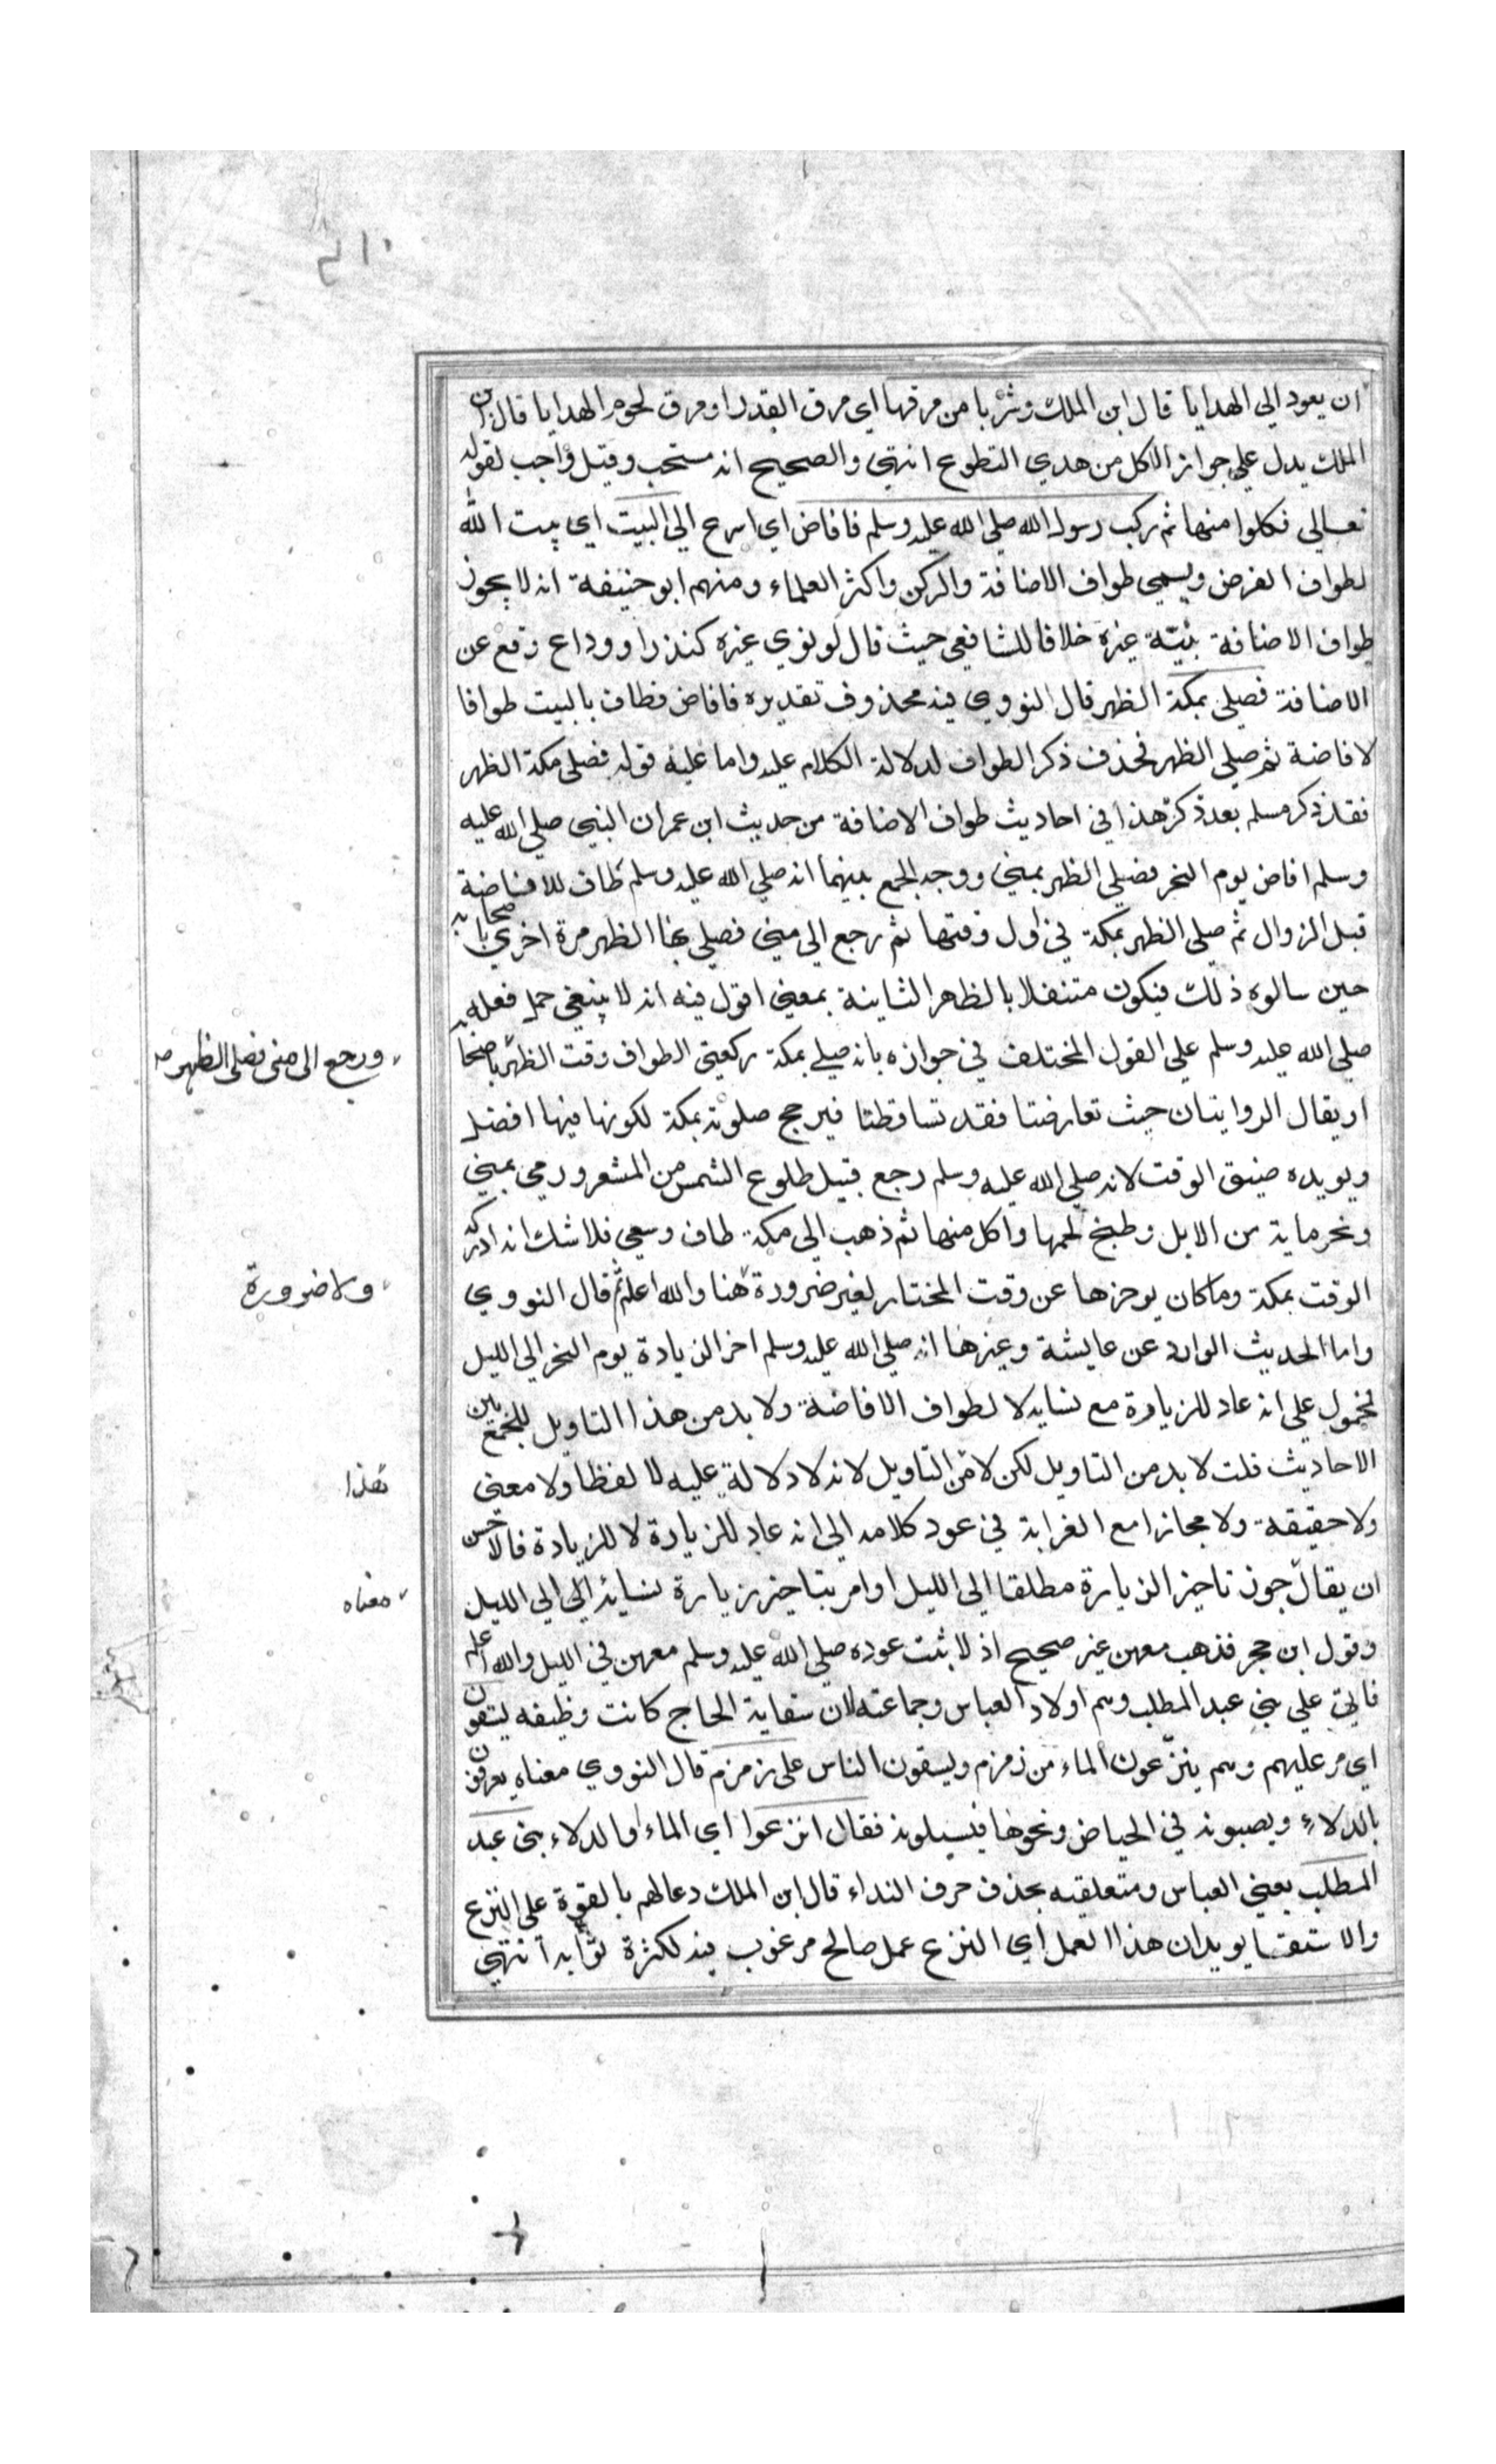 ان يعود الي الهدايا قال ابن الملك وشربا من مرقها اي مرق القدر او مرق لحوم الهدايا قال ابن
الملك يدل علي جواز الاكل من هدي التطوع انتهي والصحيح انه مستحب وقيل واجب لقوله
تعالي فكلوا منها ثم ركب رسول الله صلي الله عليه وسلم فافاض اي اسرع الي البيت اي بيت الله
لطواف الفرض ويسمي طواف الافاضة والركن واكثر العلماء ومنهم ابو حنيفة انه لا يجوز
طواف الافاضة بنية غيره خلافا للشافعي حيث قال لو نوي غيره كنذر او وداع وقع عن
الافاضة فصلي بمكة الظهر قال النووي فيه محذوف تقديره فافاض فطاف بالبيت طوافا
لافاضة ثم صلي الظهر فحذف ذكر الطواف لدلالة الكلام عليه واما عليه قوله فصلي مكة الظهر
فقد ذكر مسلم بعد ذكر هذا في احاديث طواف الافاضة من حديث ابن عمر ان النبي صلي الله عليه
وسلم افاض يوم النحر فصلي الظهر بمني ووجه الجمع بينهما انه صلي الله عليه وسلم طاف للافاضة
قبل الزوال ثم صلي الظهر بمكة في اول وقتها ثم رجع الي مني فصلي بها الظهر مرة اخري باصحابه
حين سالوه ذلك فيكون متنفلا بالظهر الثانية بمعني اقول فيه انه لا ينبغي حمل فعله
صلي الله عليه وسلم علي القول المختلف في جوازه بانه صلي بمكة ركعتي الطواف وقت الظهر باصحابه
ورجع الى منى فصلى الظهر صح
او يقال الروايتان حيث تعارضتا فقد تساقطتا فيرجح صلوته بمكة لكونها فيها افضل
ويويده ضيق الوقت لانه صلي الله عليه وسلم رجع قبيل طلوع الشمس من المشعر ورمي بمني
ونحر ماية من الابل وطبخ لحمها واكل منها ثم ذهب الي مكة طاف وسعي فلا شك انه ادركه
الوقت بمكة وما كان يوخرها عن وقت المختار لغير ضرورة هنا والله اعلم ثم قال النووي
ولا ضرورة
واما الحديث الوارد عن عايشة وغيرها انه صلي الله عليه وسلم اخر الزيادة يوم النحر الي الليل
فمحمول علي انه عاد للزيارة مع نسايه لا لطواف الافاضة ولا بد من هذا التاويل للجمع بين
الاحاديث قلت لا بد من التاويل لكن لا من التاويل لانه لا دلالة عليه لا لفظا ولا معني
هذا
ولا حقيقة ولا مجازا مع الغرابة في عود كلامه الي انه عاد للزيارة لا للزيادة فالاحسن
ان يقال جوز تاخير الزيارة مطلقا الي الليل او امر بتاخير زيارة نسايه الي الي الليل
معناه
وقول ابن حجر فذهب معهن غير صحيح اذ لا ثبت عوده صلي الله عليه وسلم معهن في الليل والله اعلم
فاتي علي بني عبد المطلب وهم اولاد العباس وجماعته لان سقاية الحاج كانت وظيفه يسقون
اي مر عليهم وهم ينزعون الماء من زمزم ويسقون الناس علي زمزم قال النووي معناه يعرفون
بالدلاء ويصبونه في الحياض ونحوها فيسبلونه فقال انزعوا اي الماء او الدلاء بني عبد
المطلب يعني العباس ومتعلقيه بحذف حرف النداء قال ابن الملك دعا لهم بالقوة علي النزع
والاستقا يويد ان هذا العمل اي النزع عمل صالح مرغوب فيه لكثرة ثوابه انتهي